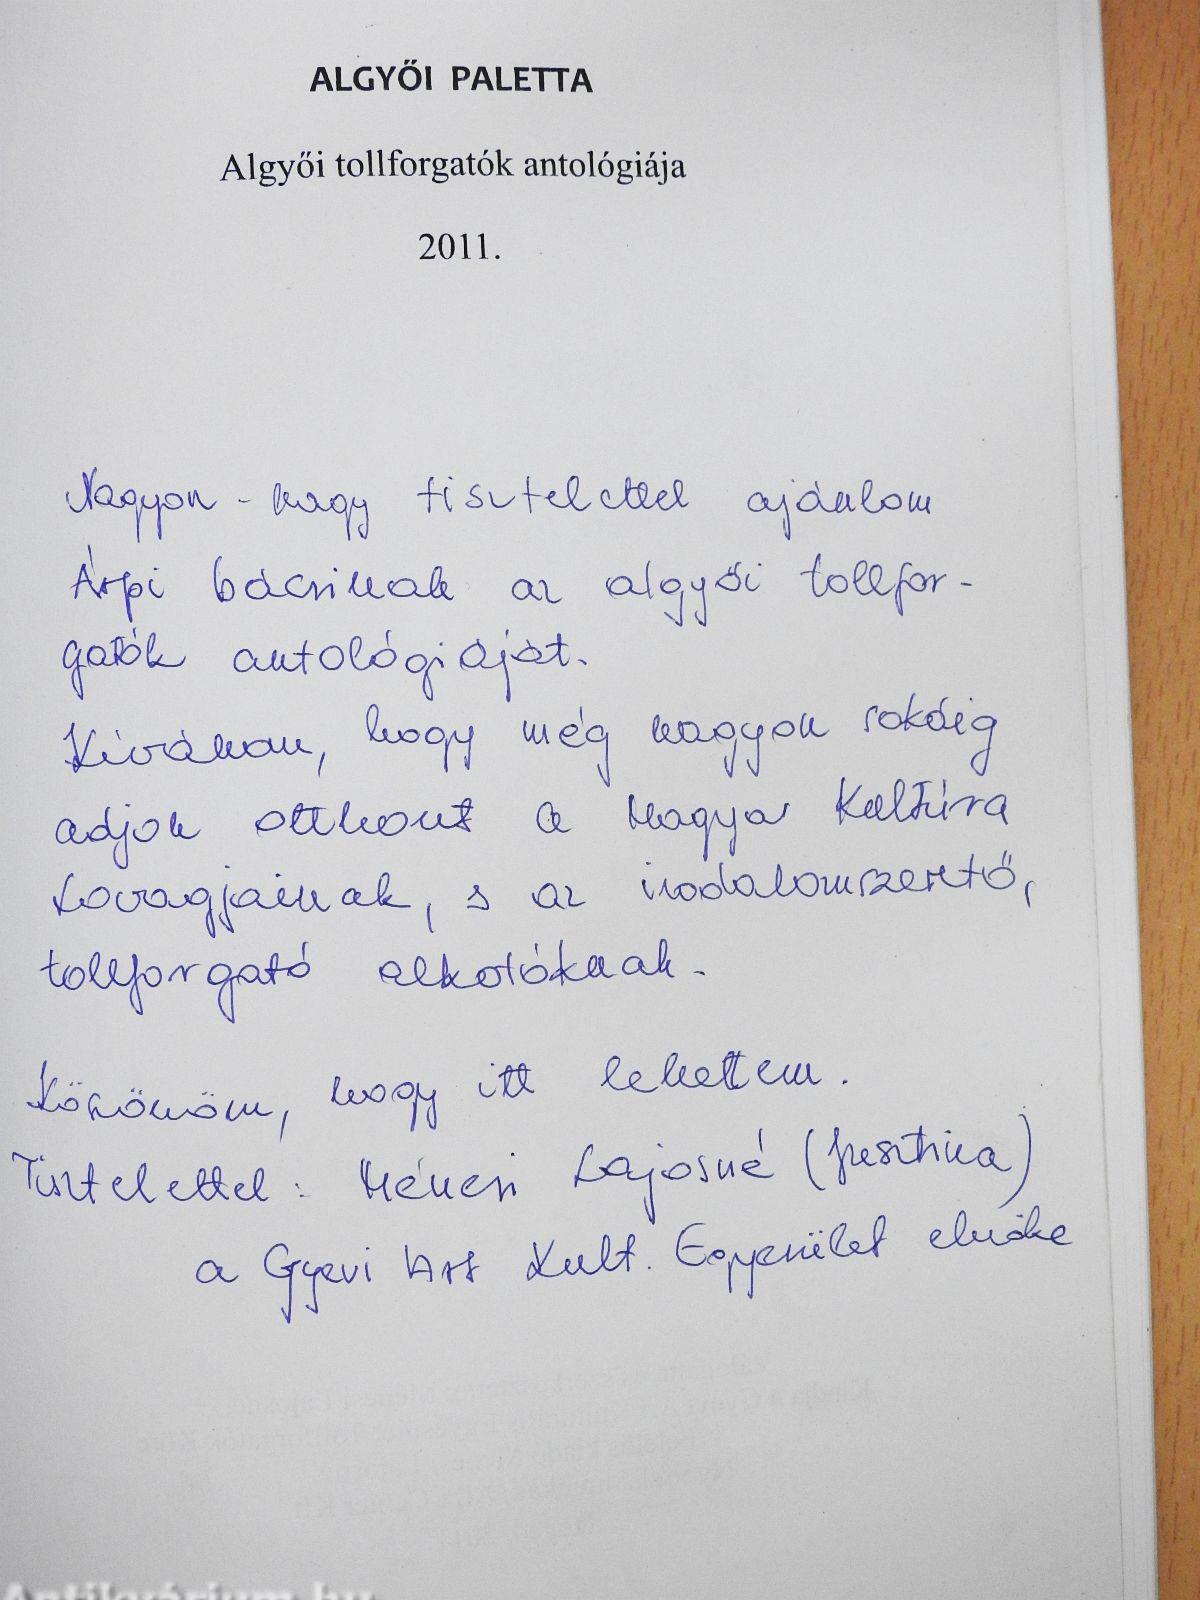 ALGYŐI PALETTA
Algyői tollforgatók antológiája
2011.
Nagyon-nagy tisztelettel ajánlom
Árpi bácsinak az algyői tollfor-
gatók antológiáját.
Kívánom, hogy még nagyon sokáig
adjon otthont a Magyar Kultúra
Lovagjainak, s az irodalomszerető,
tollforgató alkotóknak.
Köszönöm, hogy itt lehettem.
Tisztelettel: Ménesi Lajosné
a Gyevi Art Kult. Egyesület elnöke
Antikvárium.hu